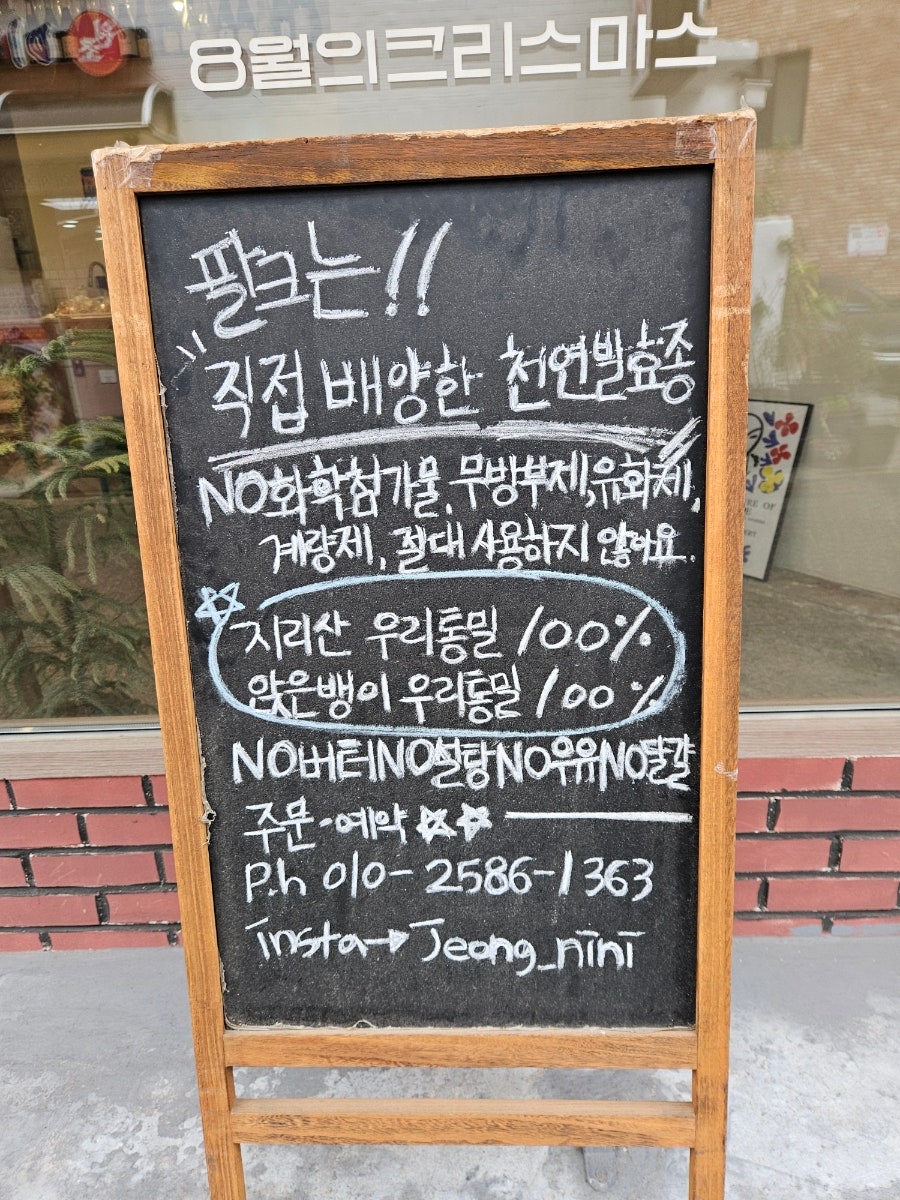 8월의크리스마스
팔크는!!
직접 배양한 천연발효종
NO화학첨가물.무방부제,유화제,
계량제, 절대 사용하지 않아요.
지리산 우리통밀 100%
앉은뱅이 우리통밀 100%
NO버터NO설탕NO우유NO달걀
주문·예약
P.h 010-2586-1363
insta→Jeong_nini